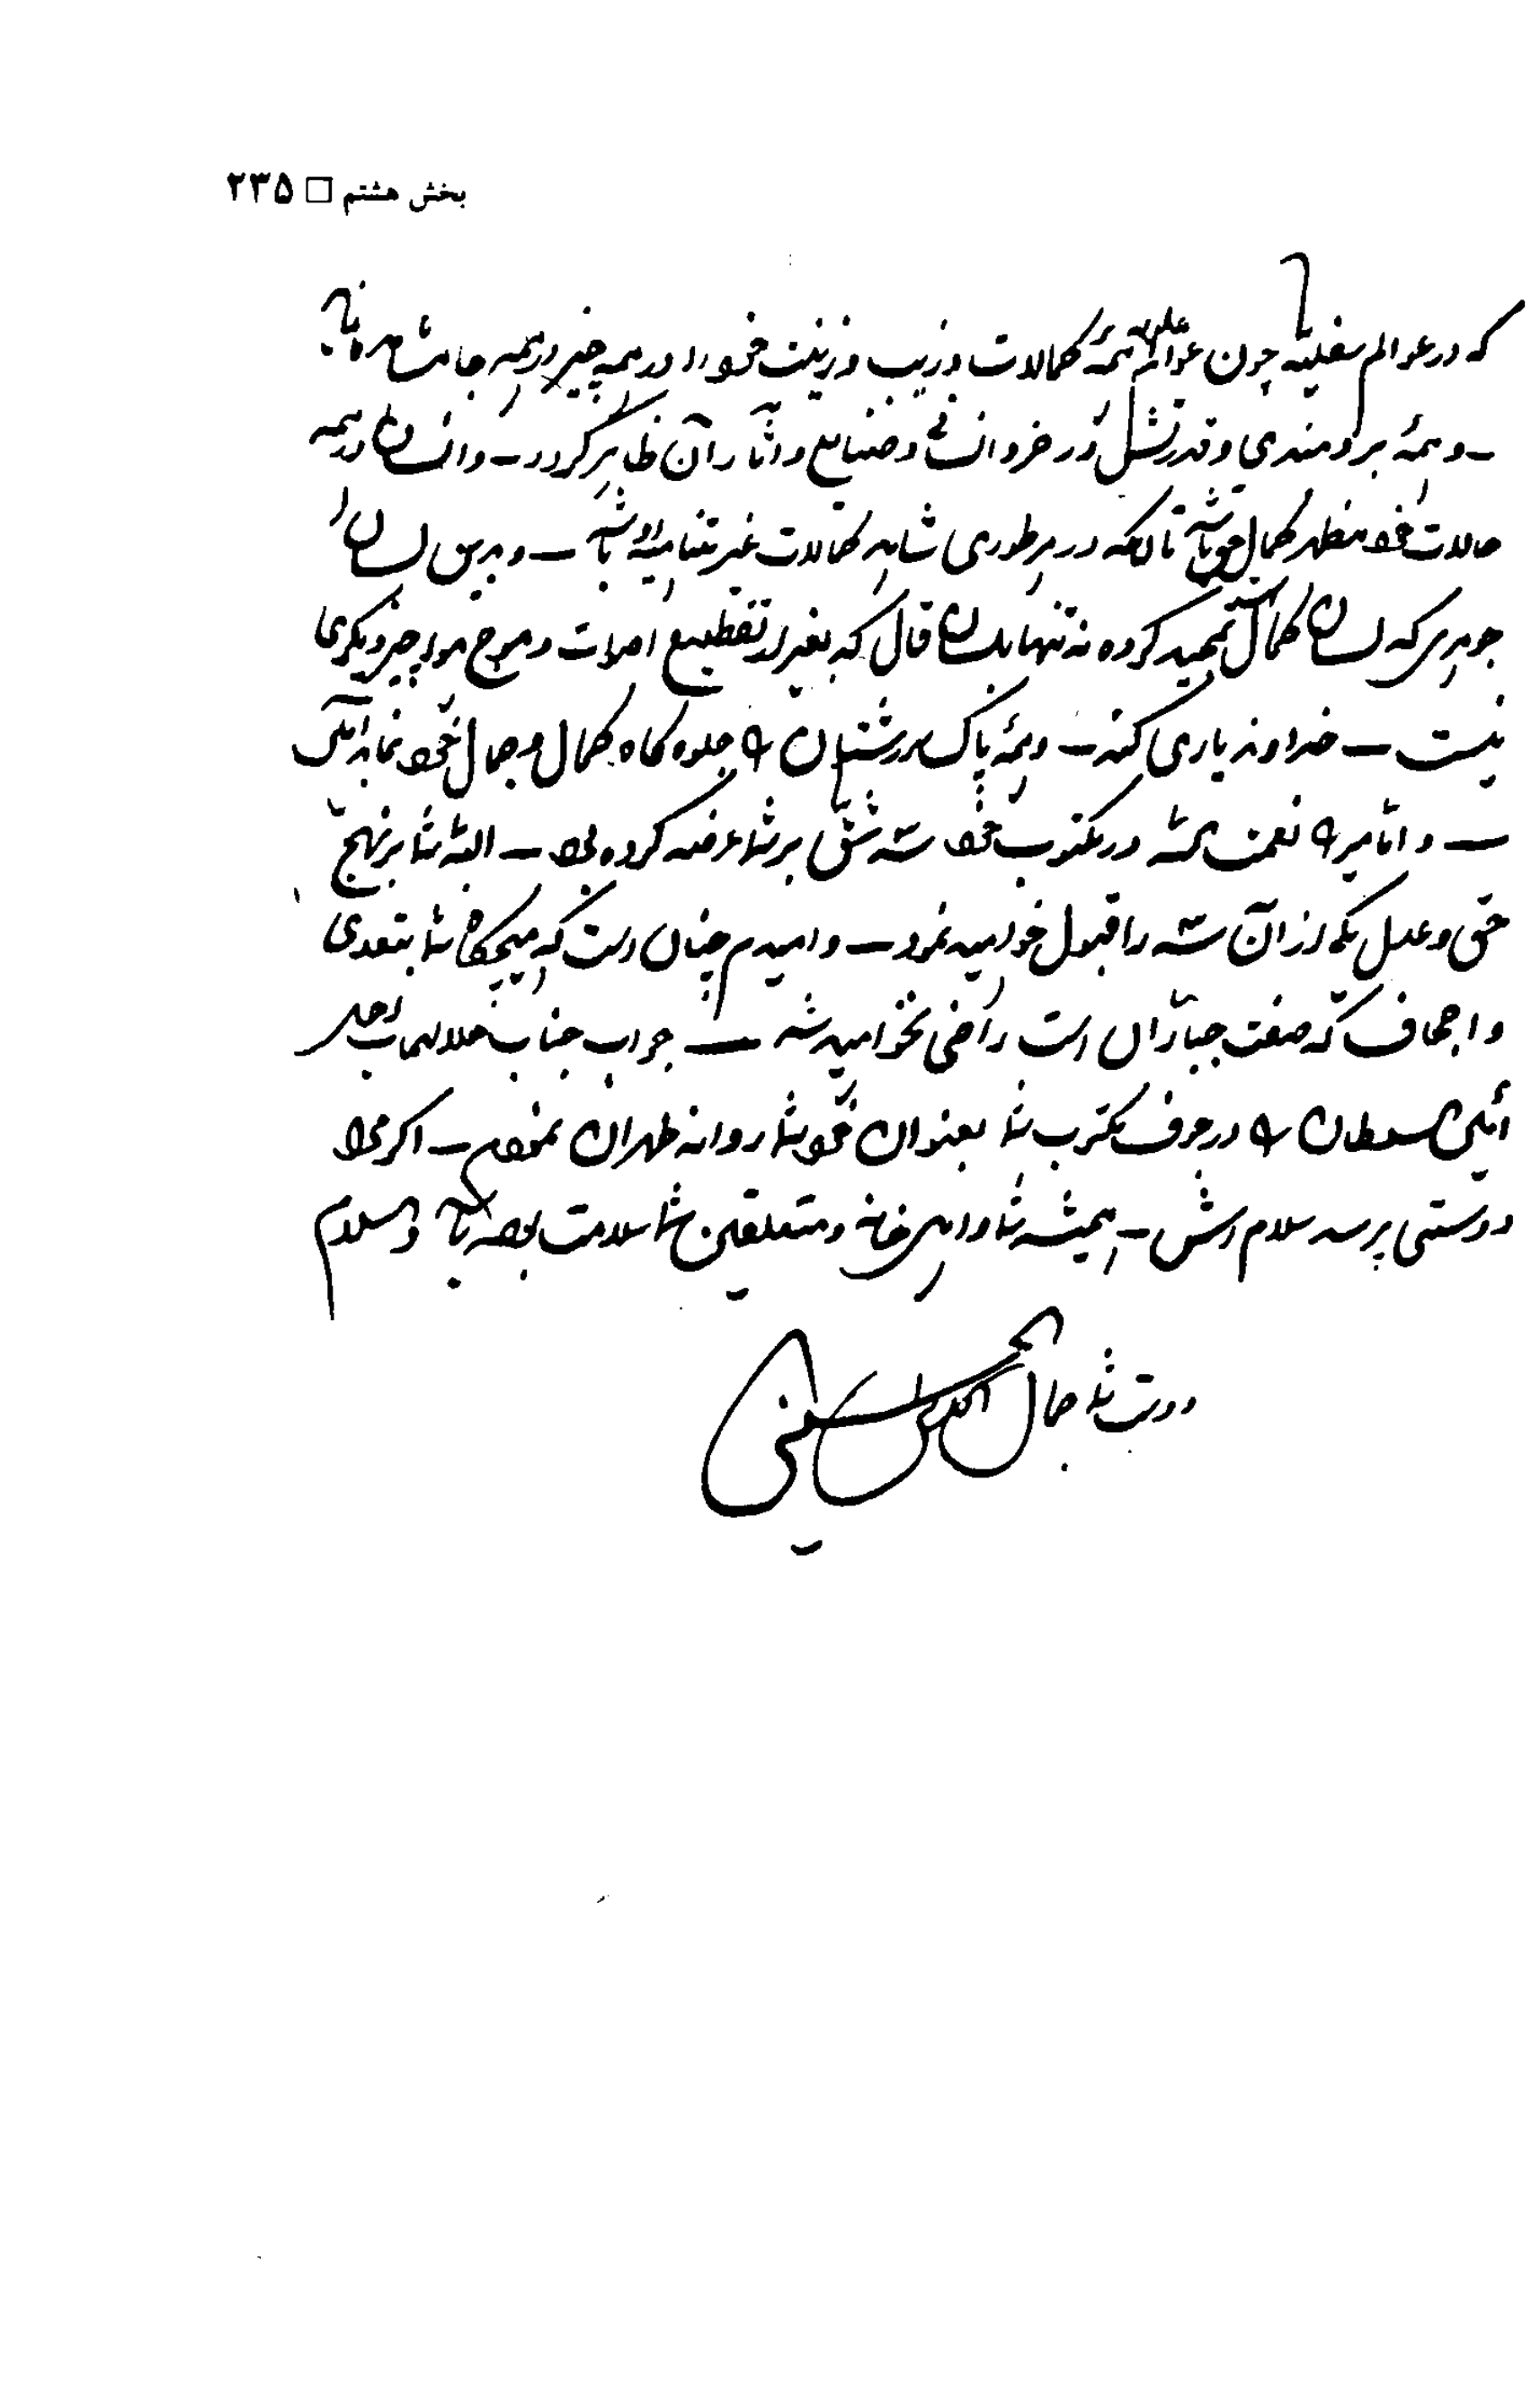 بخش هشتم □ ۲۳۵
که در عوالم سفلیه چون عوالم علویه همهٔ کمالات و زیب و زینت خود را در همه چیز و در همه جا مشاهده نماید
ـ و همهٔ برومندی و قدرتش در خرد انسانی و صنایع و آثار آن ظاهر گردد ـ و انسان در همه
حالات خود مظهر کمال حق باشد تا آنکه در هر طوری شاهد کمالات غیر متناهیه او باشد ـ و بدین لسان
جوهری که لسان کمال است تمجید کرده نه تنها بلسان قال که بغیر از تقطیع اصوات و موج هوا چیز دیگری
نیست ـ خداوند یاری کند ـ و همهٔ پاک سرشتان را جلوه گاه کمال و جمال خود نماید آمین
ـ و اما میرزا نعمت الله در مکتوب خود سه شق بر شما عرضه کرده بود ـ البته شما بر نهج
حق و عدل یکی از آن سه را قبول خواهید نمود ـ و امیدم چنان است که هیچگاه شما بتعدی
و اجحاف که صفت جباران است راضی نخواهید شد ـ جواب جناب جلالتمآب اجل
امین السلطان را در جوف مکتوب شما بعنوان خود شما روانه طهران نمودم ـ اگر
دوستی پرسد سلام ـ همیشه شما و اهل خانه و متعلقین شما سلامت بوده باشد والسلام
دوست شما جمال الدین الحسینی